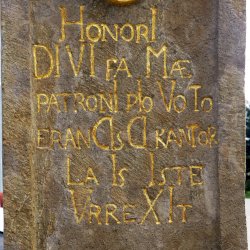 HONORI
DIVI FA MÆ
PATRONI PIO VOTO
ERANCISCI KANTOR
LAIS ISTE
URREXIT